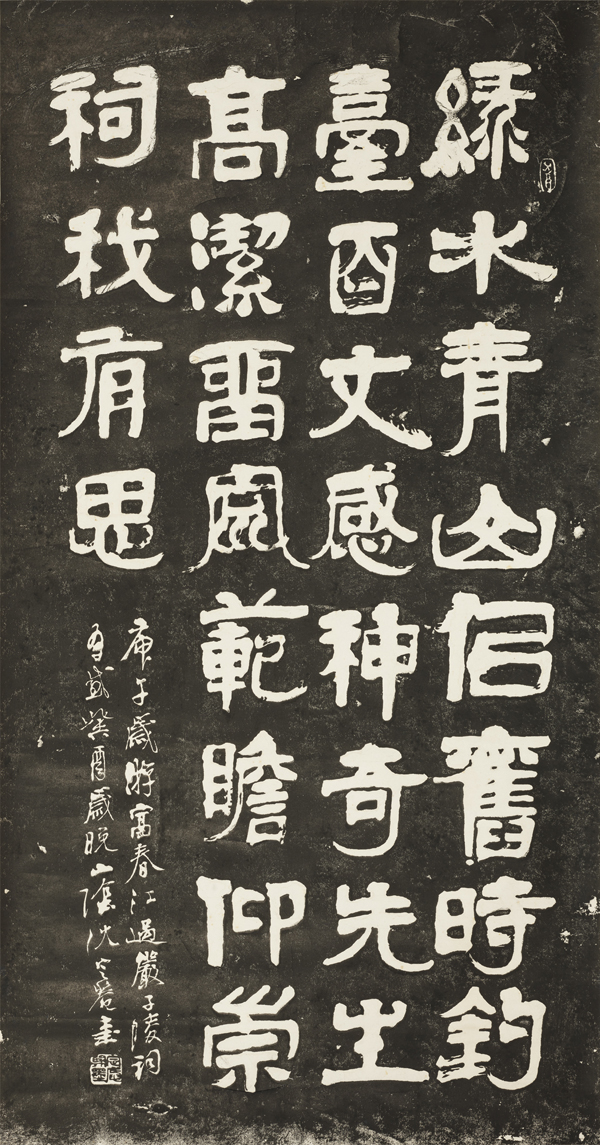 綠水青山佀舊時釣
臺百丈感神奇先生
高潔畱風範瞻仰崇
祠我有思
庚午歲游富春江過嚴子陵祠
有感癸酉歲晚山陰沈定菴書